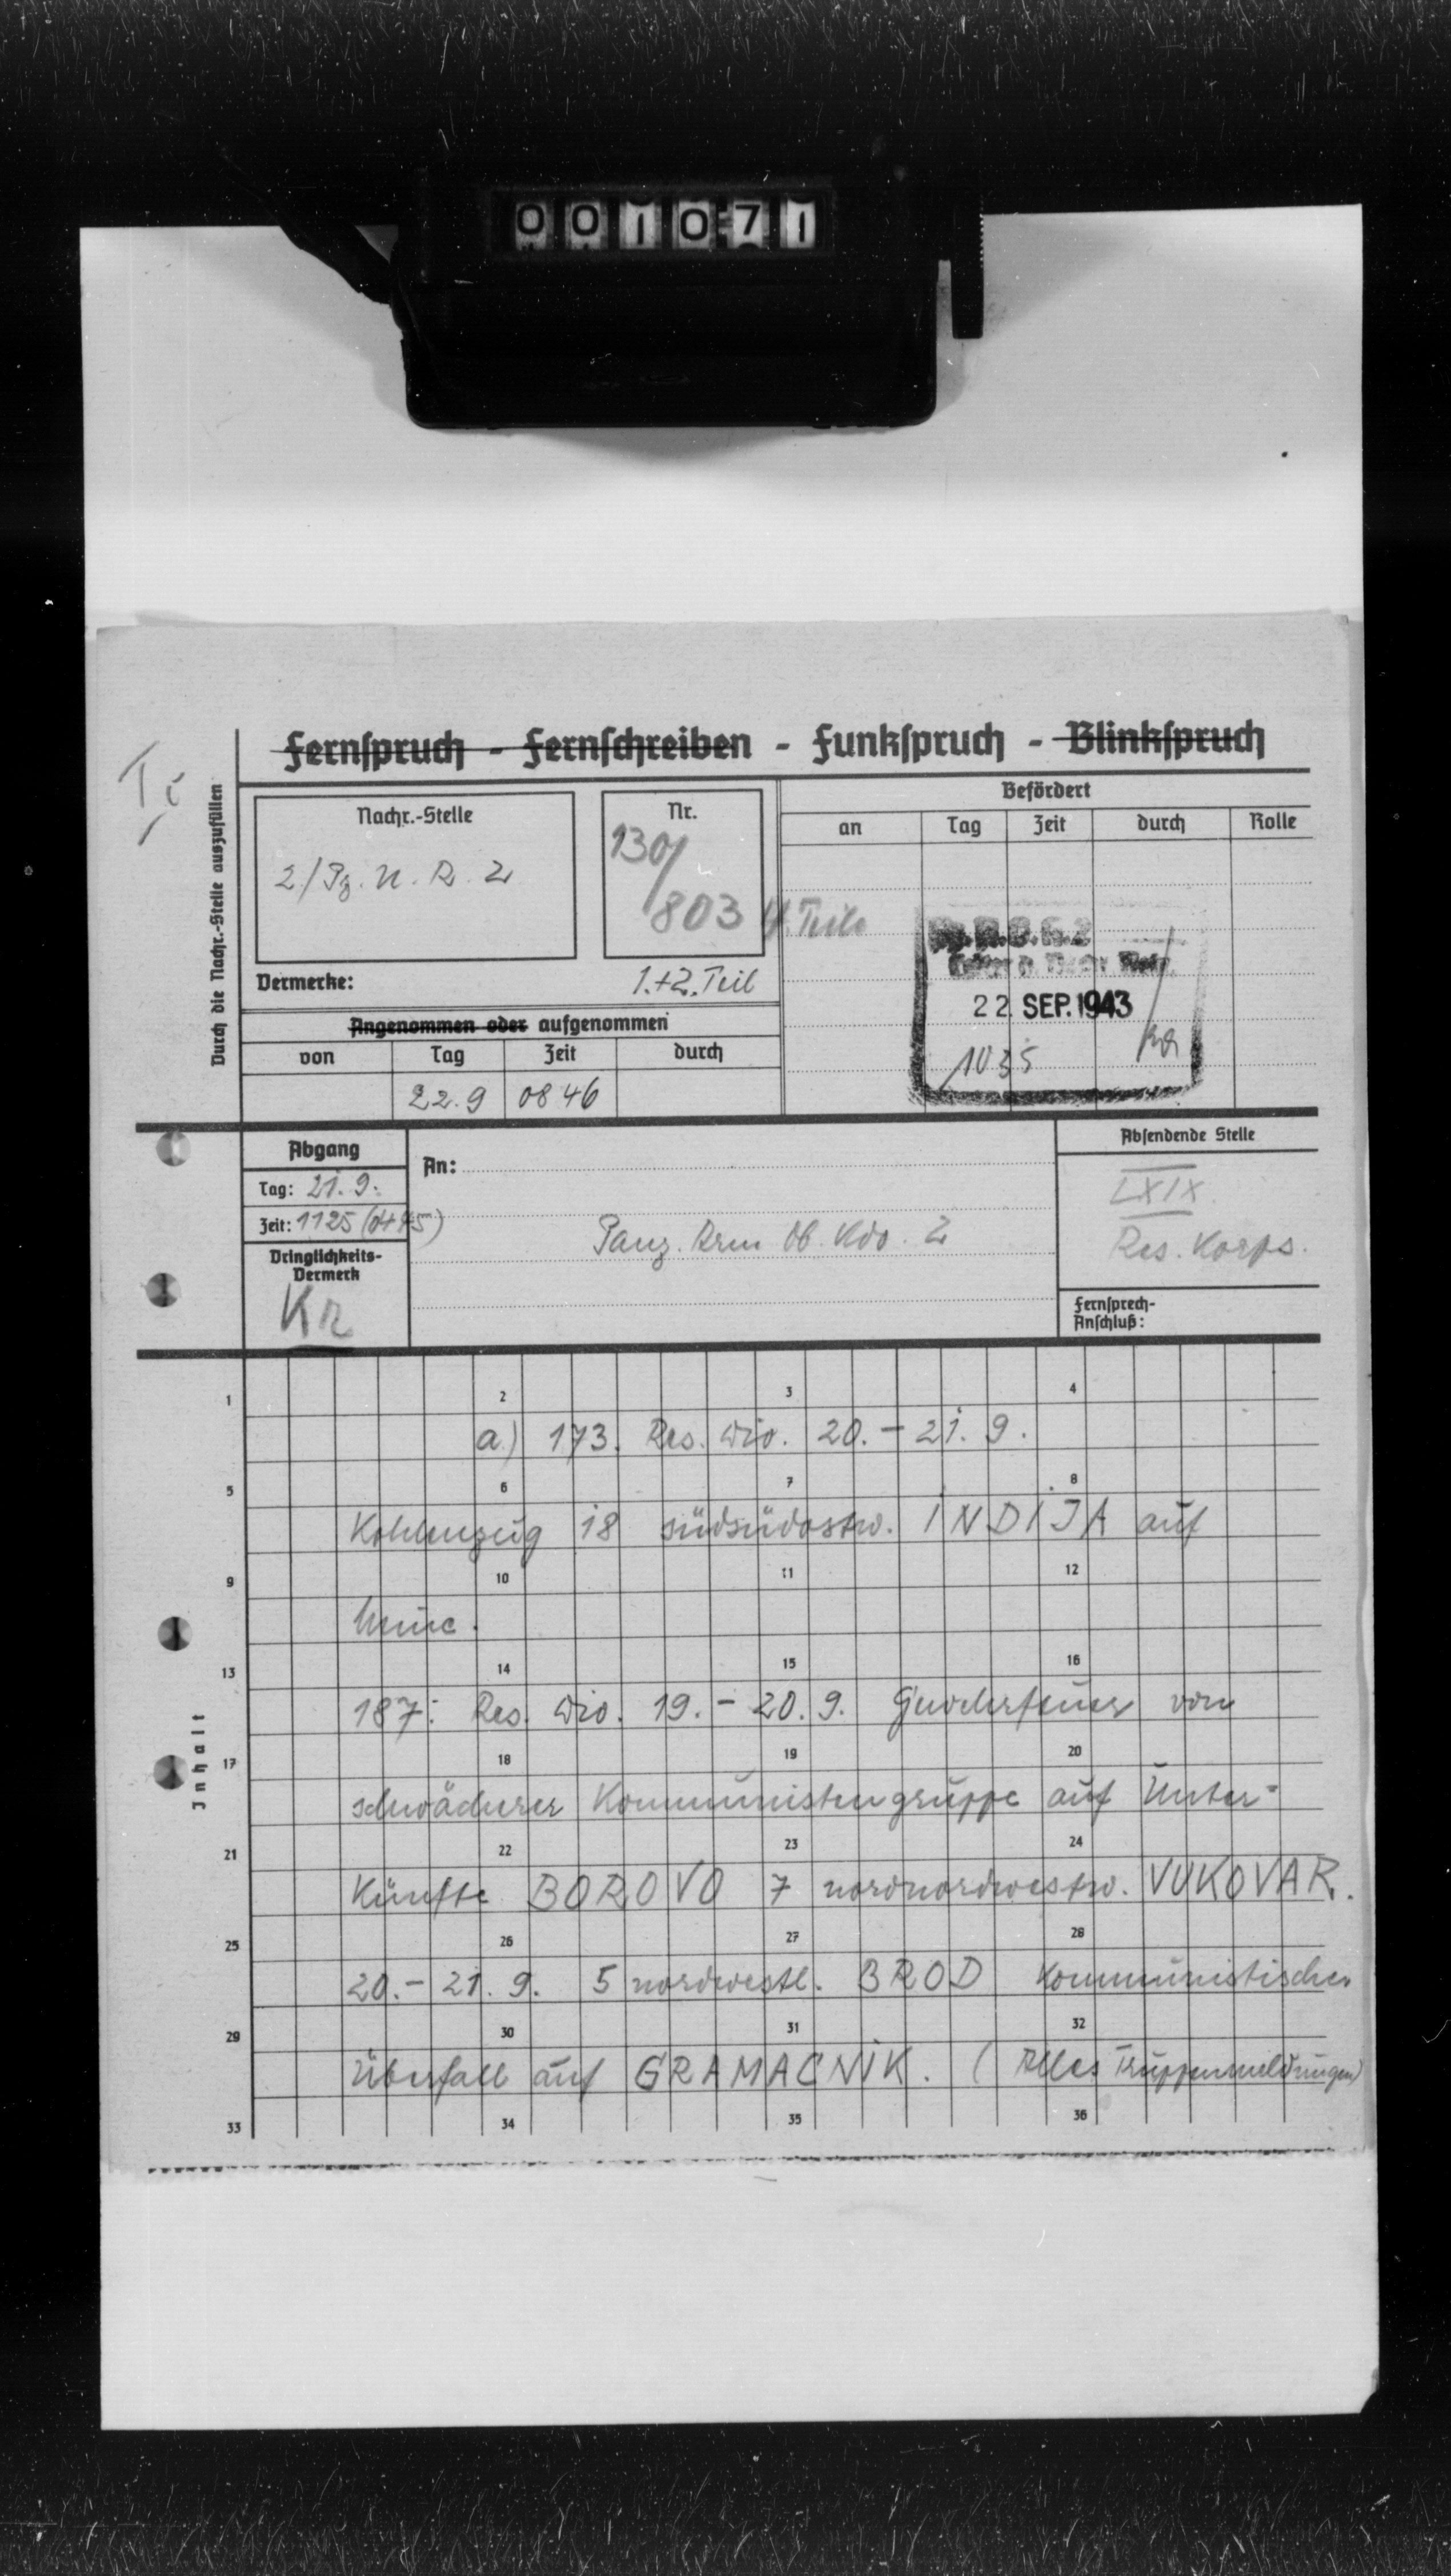 001071
Fernspruch - Fernschreiben - Funkspruch - Blinkspruch
Durch die Nachr.-Stelle auszufüllen
Nachr.-Stelle
2/Pz. N. R. 2
Nr.
130/
803 4 Teile
Vermerke:
1.+2. Teil
Angenommen oder aufgenommen
von Tag Zeit durch
22.9 0846
Befördert
an Tag Zeit durch Rolle
22. SEP. 1943
1035
Abgang
Tag: 21. 9.
Zeit: 1125
Dringlichkeits-
Vermerk
KR
An:
Panz. Arm Ob. Kdo. 2
Absendende Stelle
LXIX
Res. Korps.
Fernsprech-
Anschluß:
Inhalt
1 2 3 4
a.) 173. Res. Div. 20. - 21. 9.
5 6 7 8
Kohlenzug 18 südsüdostw. INDIJA auf
9 10 11 12
Mine.
13 14 15 16
187. Res. Div. 19. - 20. 9. Gewehrfeuer von
17 18 19 20
schwächerer Kommunistengruppe auf Unter-
21 22 23 24
künfte BOROVO 7 nordnordwestw. VUKOVAR.
25 26 27 28
20. - 21. 9. 5 nordwestl. BROD kommunistischer
29 30 31 32
Überfall auf GRAMACNIK. (Alles Truppenmeldungen)
33 34 35 36